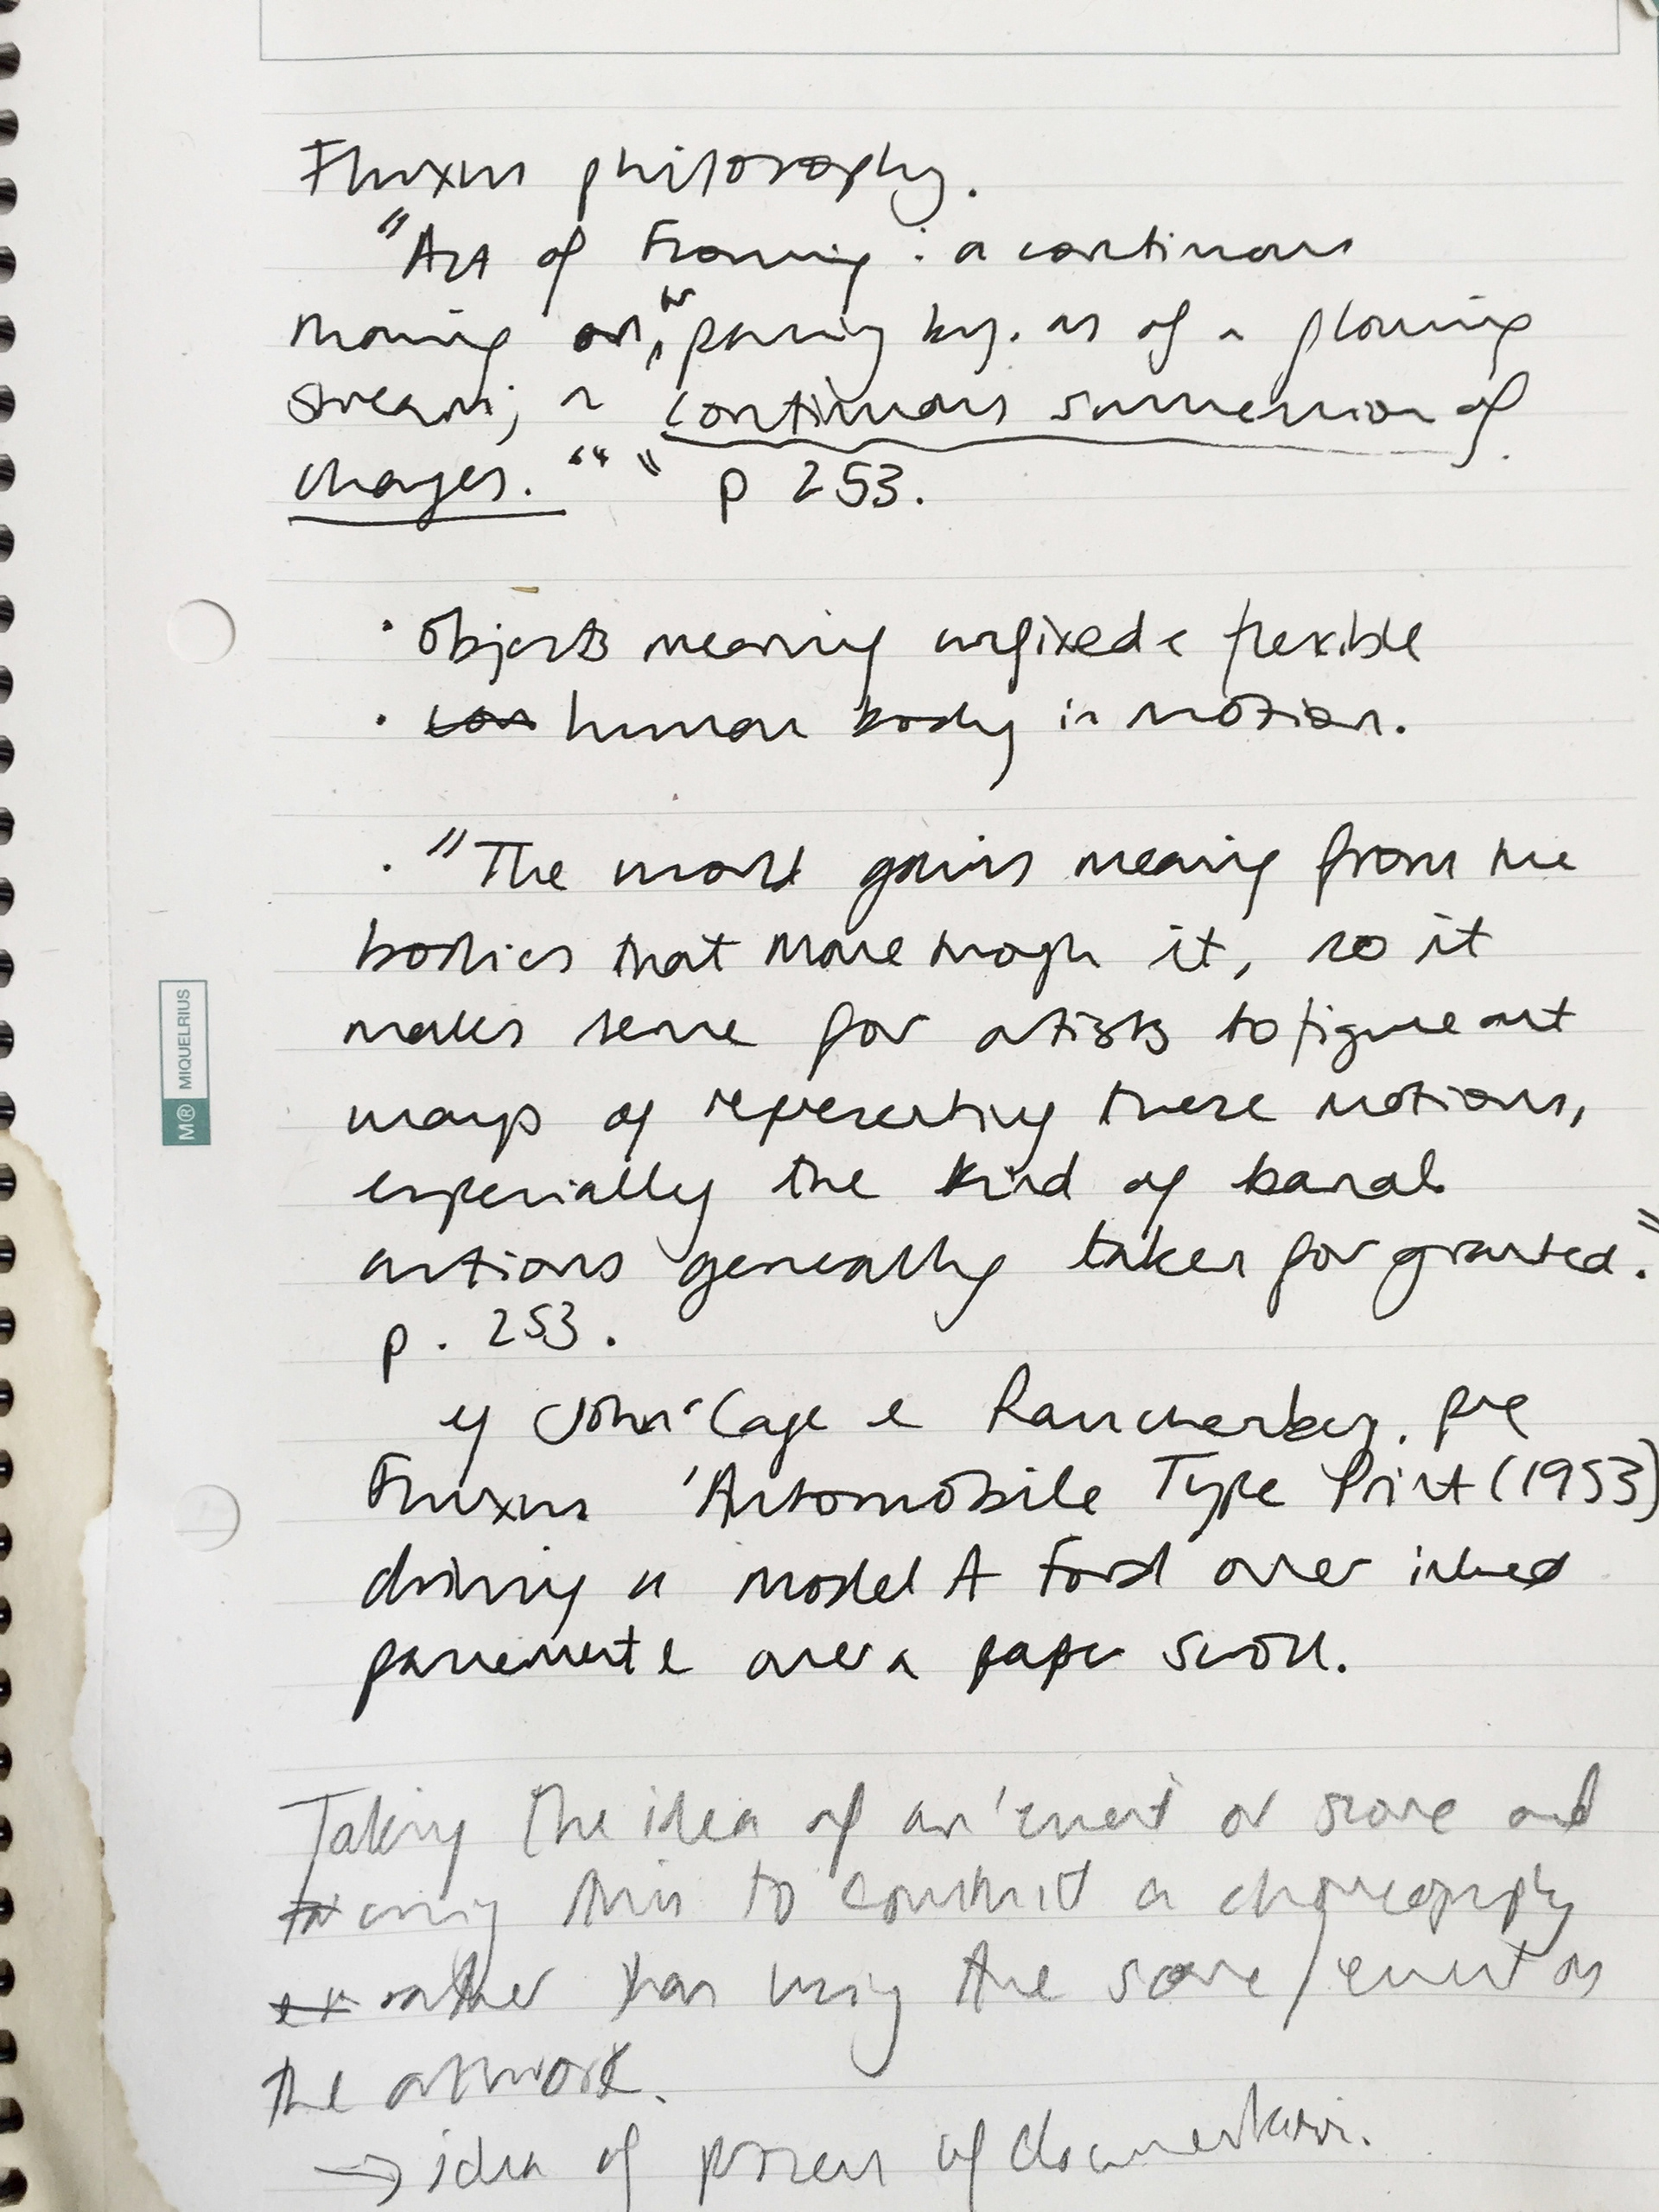 Fluxus philosophy.
"Act of Flowing: a continuous
moving on or passing by, as of a flowing
stream; a continuous succession of
changes."" p 253.
· objects meaning unfixed & flexible
· human body in motion.
· "The world gains meaning from the
bodies that move through it, so it
makes sense for artists to figure out
ways of representing these motions,
especially the kind of banal
actions generally taken for granted."
p. 253.
eg John Cage & Rauschenberg. pre
Fluxus 'Automobile Type Print (1953)
driving a model A Ford over inked
pavement & over a paper scroll.
Taking the idea of an 'event or score and
using this to construct a choreography
rather than using the score/event as
the artwork.
→ idea of process of documentation.
M® MIQUELRIUS